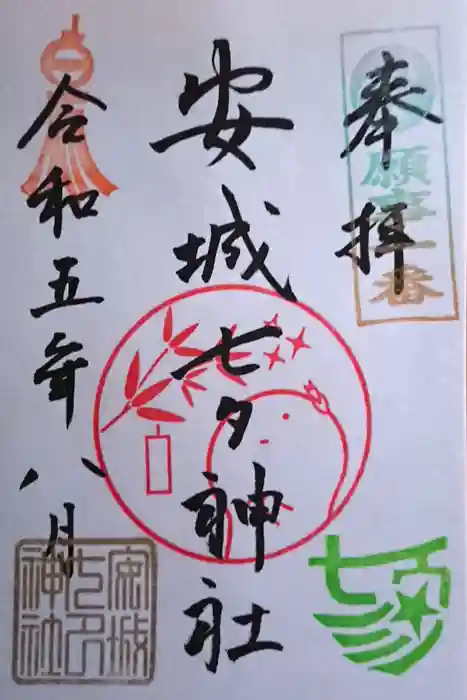 奉拝
願事一番
安城七夕神社
令和五年八月
安城七夕神社